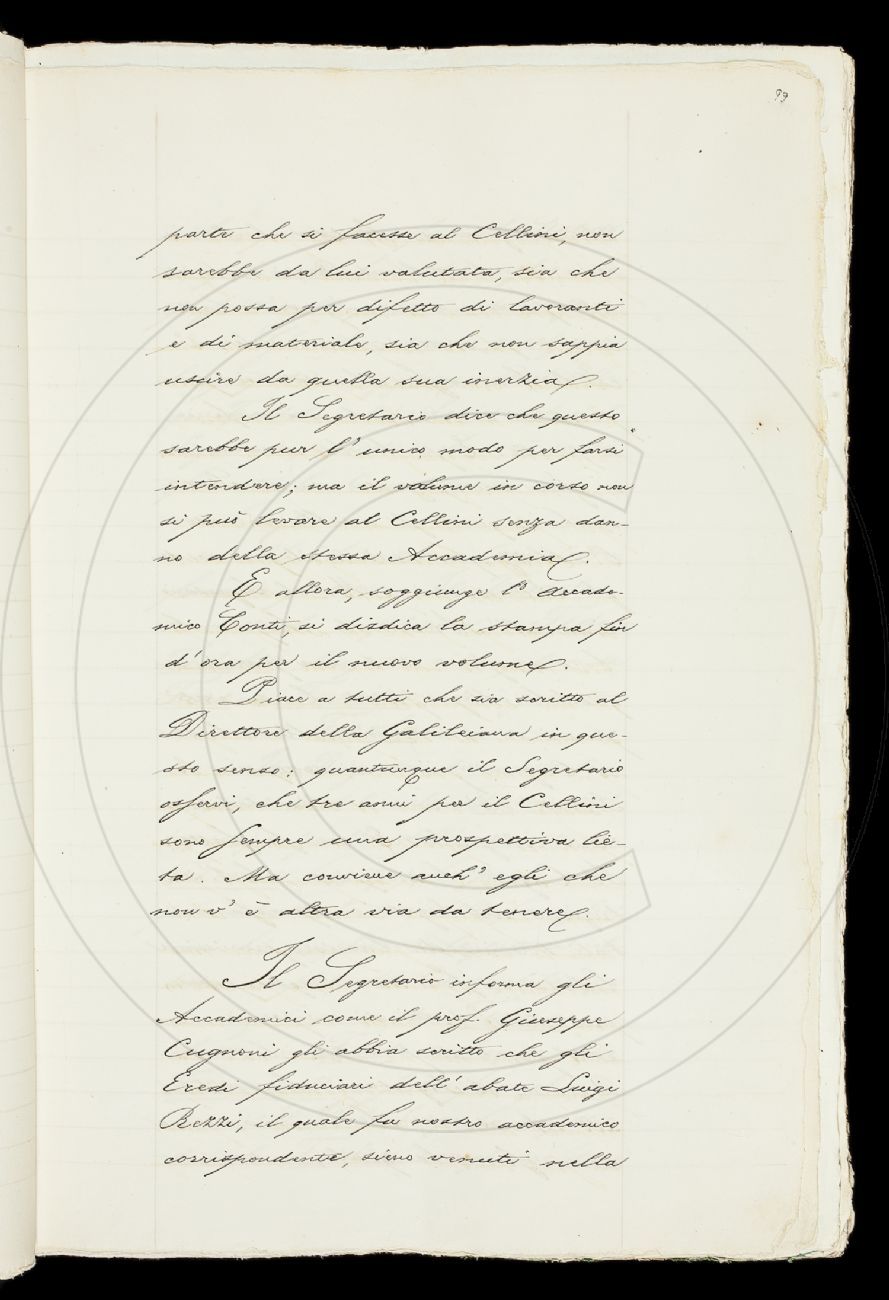 99
parte che si facesse al Cellini, non
sarebbe da lui valutata, sia che
non possa per difetto di lavoranti
e di materiale, sia che non sappia
uscire da quella sua inerzia.
Il Segretario dice che questo
sarebbe pur l'unico modo per farsi
intendere; ma il volume in corso non
si può levare al Cellini senza dan-
no della stessa Accademia.
E allora, soggiunge l'Accade-
mico Conti, si disdica la stampa fin
d'ora per il nuovo volume.
Piace a tutti che sia scritto al
Direttore della Galileiana in que-
sto senso: quantunque il Segretario
osservi, che tre anni per il Cellini
sono sempre una prospettiva lie-
ta. Ma conviene anch'egli che
non v'è altra via da tenere.
Il Segretario informa gli
Accademici come il prof. Giuseppe
Cugnoni gli abbia scritto che gli
Eredi fiduciari dell'abate Luigi
Rezzi, il quale fu nostro accademico
corrispondente, sieno venuti nella